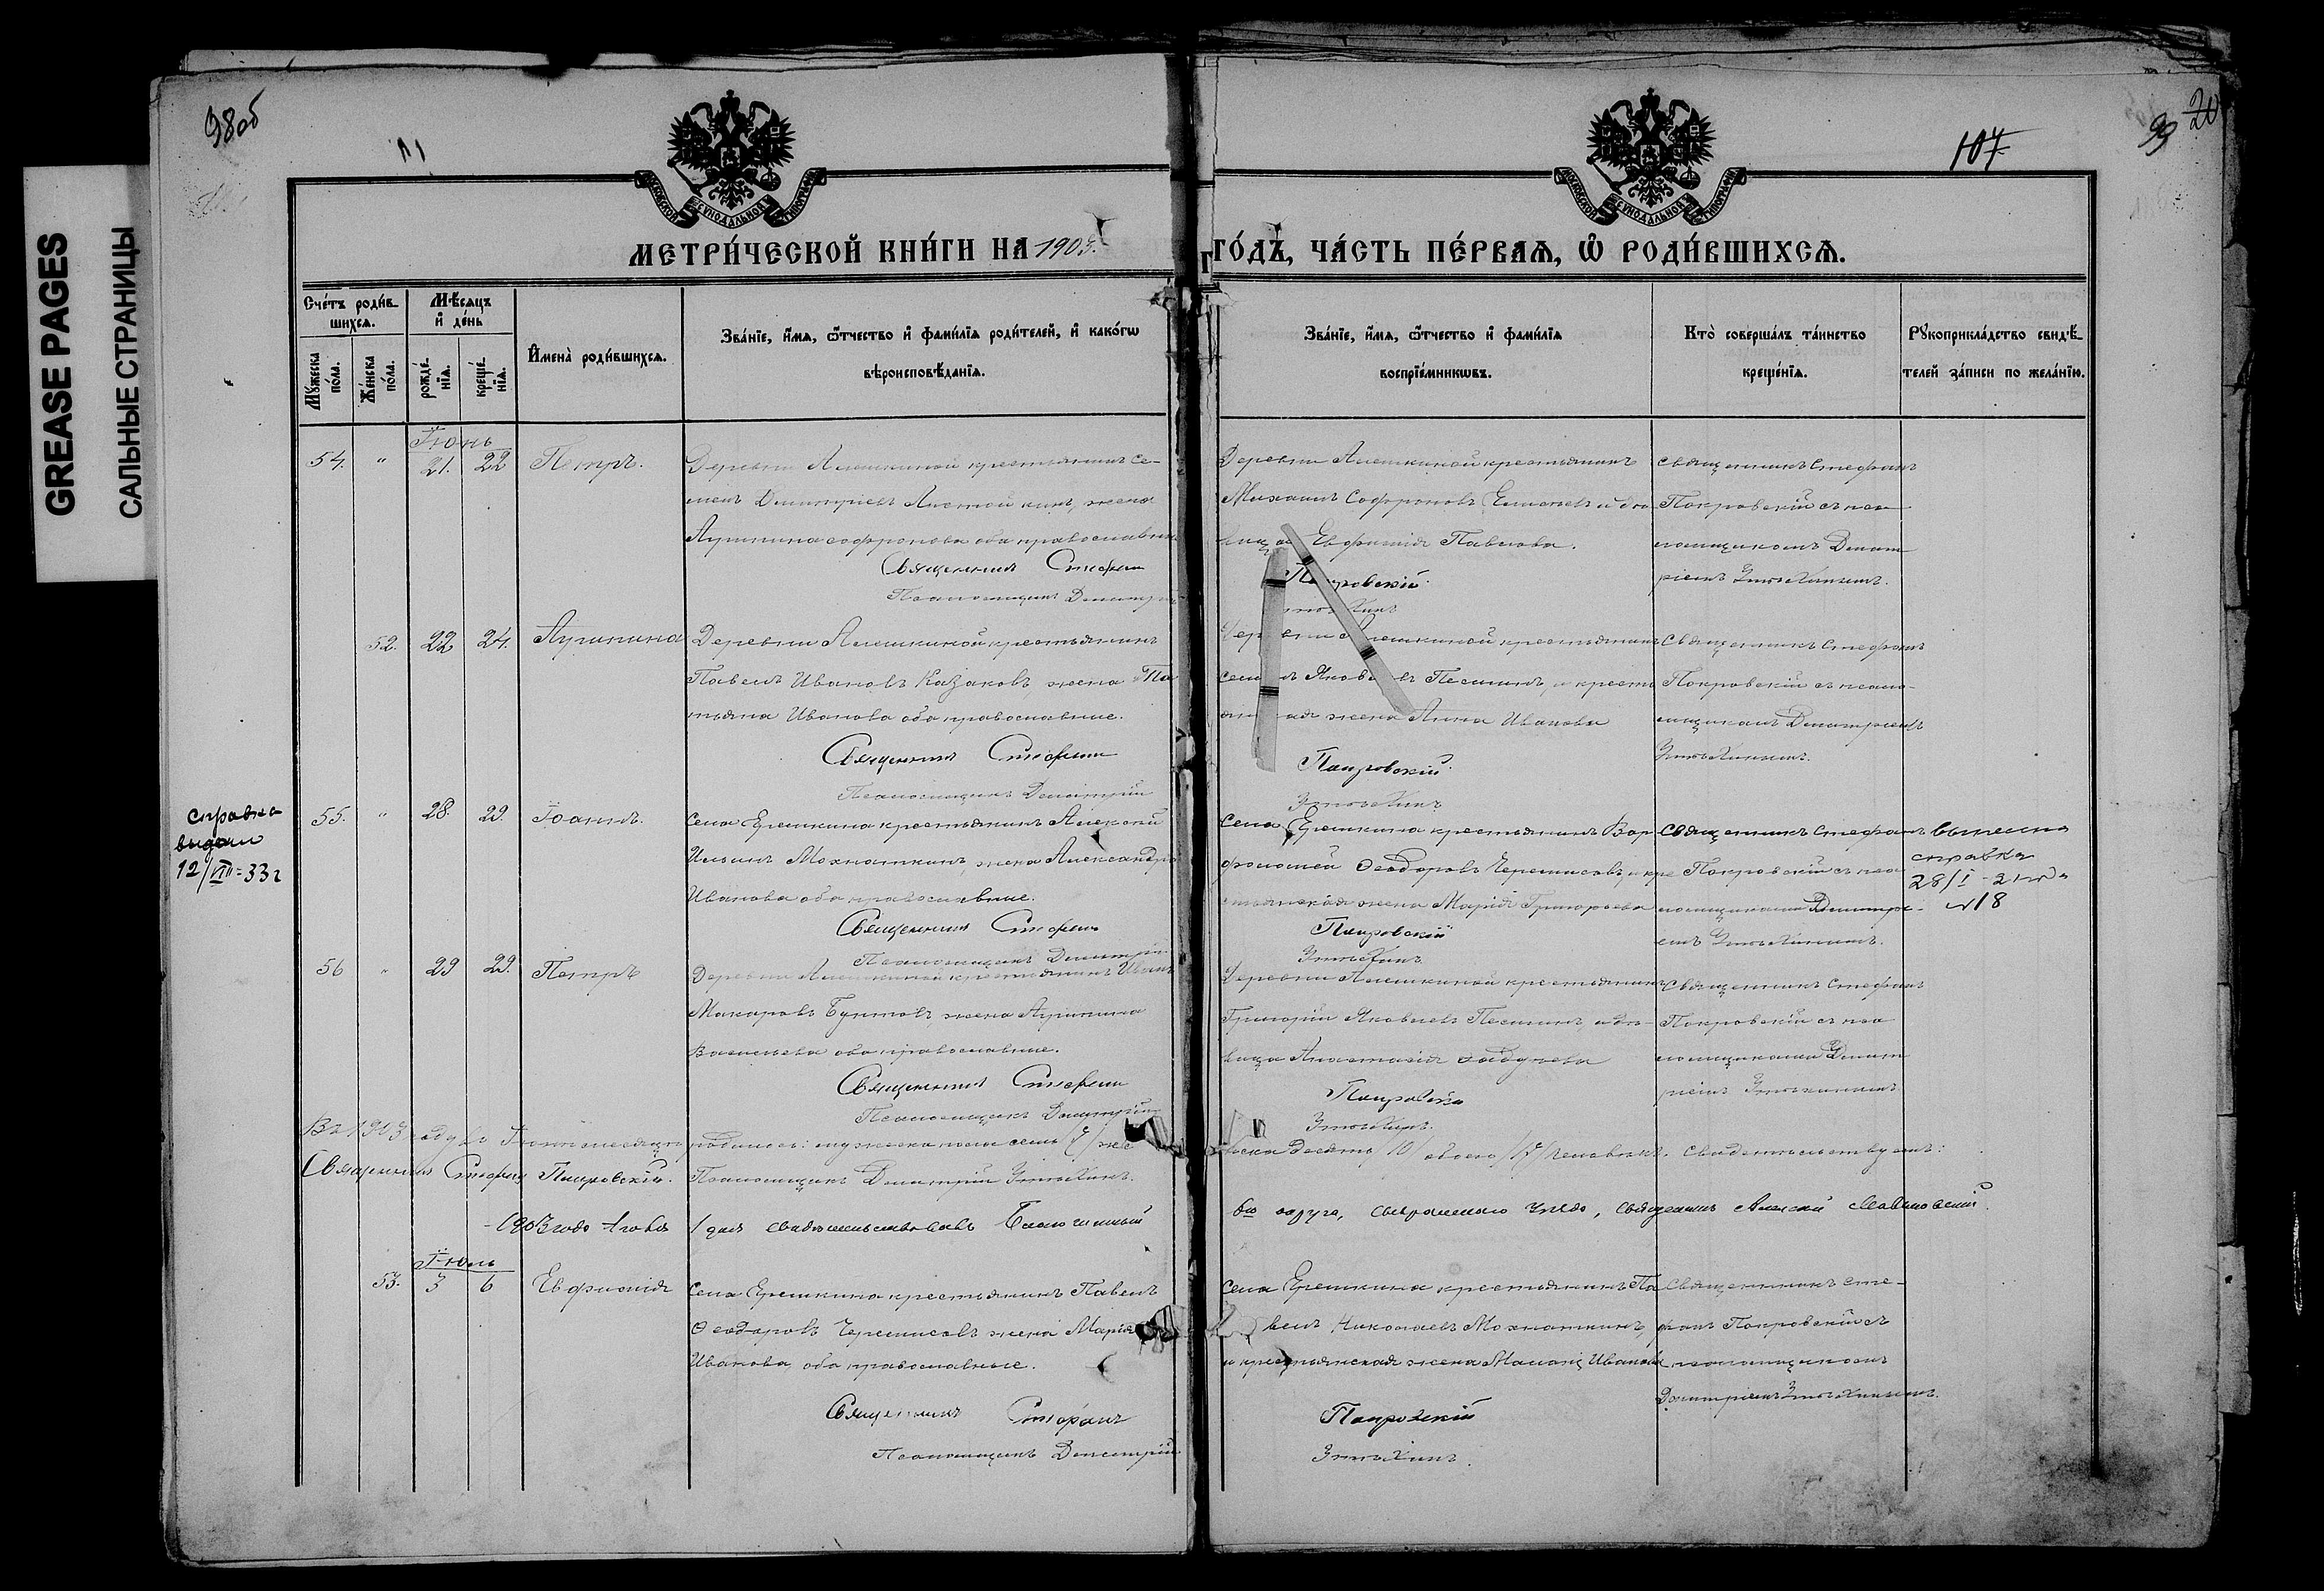 98об
107
99
20
GREASE PAGES
САЛЬНЫЕ СТРАНИЦЫ
МЕТРИ́ЧЕСКОЙ КНИ́ГИ НА 1903
ГО́ДЪ, ЧА́СТЬ ПЕ́РВАѦ, Ѡ РОДИ́ВШИХСѦ.
Сче́тъ роди́в-
шихсѧ.
Мꙋ́жеска по́ла.
Же́нска по́ла.
Мѣ́сѧцъ и де́нь
рожде́-нїѧ.
креще́-нїѧ.
Имена̀ роди́вшихсѧ.
Зва́нїе, и́мѧ, ѻ́тчество и фами́лїѧ роди́телей, и како́гѡ
вѣроисповѣ́данїѧ.
Зва́нїе, и́мѧ, ѻ́тчество и фами́лїѧ
воспрїе́мникѡвъ.
Кто̀ соверша́лъ та́инство
креще́нїѧ.
Рꙋкоприкла́дство свидѣ́-
телей за́писи по жела́нїю.
Іюнь
54. " 21. 22 Петръ.
Деревни Алешкиной крестьянинъ Се-
менъ Димитріевъ жена
Агрипина Софронова оба православные
Священникъ Стефанъ
Псаломщикъ Димитрій
Деревни Алешкиной крестьянинъ
Михаилъ Софроновъ и дѣ-
вица Евфимія Павлова.
Покровскій
Священникъ Стефанъ
Покровскій съ пса-
ломщикомъ Димит
ріемъ
52. 22 24. Агрипина
Деревни Алешкиной крестьянинъ
Павелъ Ивановъ Казаковъ, жена Та
тьяна Иванова оба православные.
Священникъ Стефанъ
Псаломщикъ Димитрій
Деревни Алешкиной крестьянинъ
Яковлевъ и кресть
янская жена Анна Иванова
Покровскій
Священникъ Стефанъ
Покровскій съ псало-
мщикомъ Димитріемъ
справка
выдана
12/VII-33 г
55. " 28. 29. Іоаннъ.
Села Ерешкина крестьянинъ Алексѣй
Ильинъ Мохнаткинъ, жена Александра
Иванова оба православные.
Священникъ Стефанъ
Псаломщикъ Димитрій
Села Ерешкина крестьянинъ Вар
фоломей Ѳеодоровъ Черемисовъ, и кре
стьянская жена Марія Григорьева
Покровскій
Священникъ Стефанъ
Покровскій съ пса
ломщикомъ Димитрі-
емъ
справка
№18
56 " 29 29. Петръ
Деревни Алешкиной крестьянинъ Иванъ
Макаровъ жена Агрипина
Васильева оба православные.
Священникъ Стефанъ
Псаломщикъ Димитрій
Деревни Алешкиной крестьянинъ
Григорій Яковлевъ и дѣ-
вица Анастасія
Покровскій
Священникъ Стефанъ
Покровскій съ пса
ломщикомъ Димит
ріемъ
Въ 1903 году въ Іюнѣ мѣсяцѣ родилось: мужеска пола семь /7/ же
нска десять /10/ обоего /17/ человѣкъ. свидѣтельствуемъ:
Священникъ Стефанъ Покровскій. Псаломщикъ Димитрій
1903 года 1 дня свидѣтельствовалъ Благочинный
6го округа, священникъ Алексѣй
Іюль
53. 3 6 Евфимія
Села Ерешкина крестьянинъ Павелъ
Ѳеодоровъ Черемисовъ жена Марія
Иванова, оба православные.
Священникъ Стефанъ
Псаломщикъ Димитрій
Села Ерешкина крестьянинъ Па
велъ Николаевъ Мохнаткинъ,
и крестьянская жена Иванова
Покровскій
Священникъ Сте-
фанъ Покровскій съ
псаломщикомъ
Димитріемъ